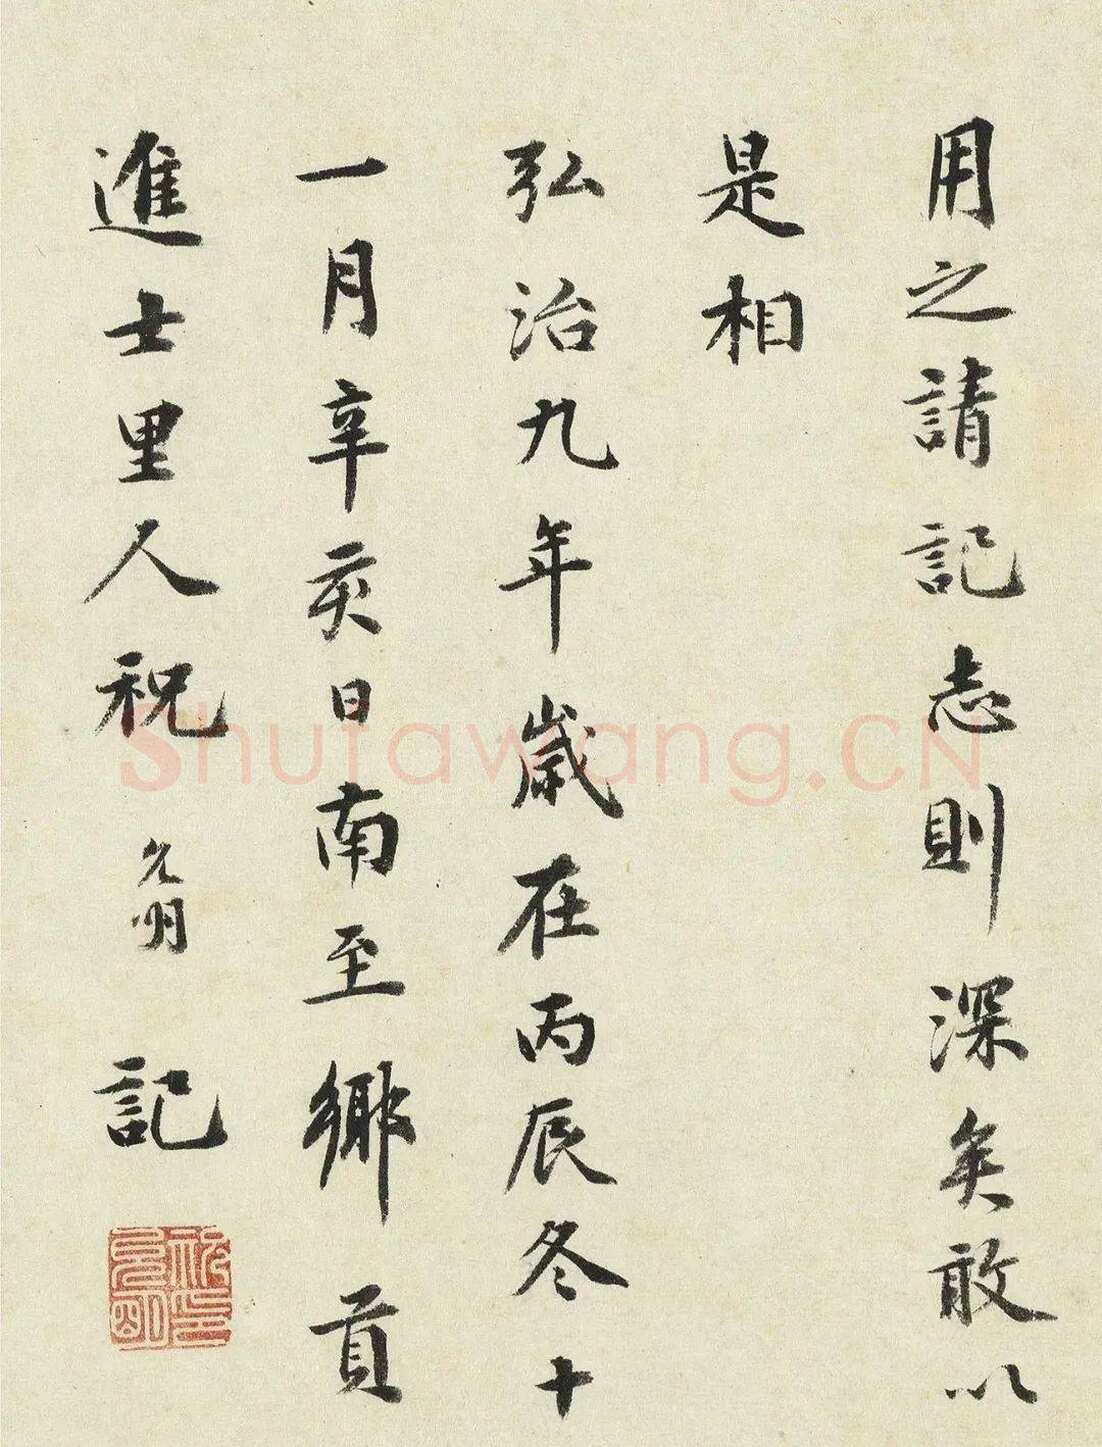 用之請記志則深矣敢以
是相
弘治九年歲在丙辰冬十
一月辛亥日南至鄉貢
進士里人祝允明記
祝允明印
Shufawang.CN